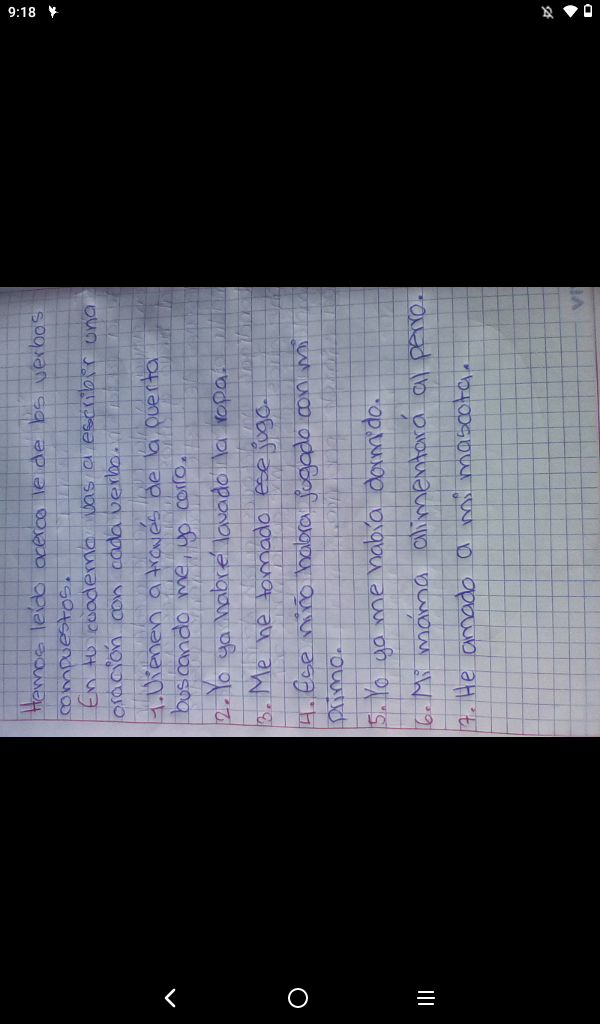 9:18
Hemos leído acerca le de los verbos
compuestos.
En tu cuaderno vas a escribir una
oración con cada verbo.
1. Vienen a través de la puerta
buscando me, yo corro.
2. Yo ya habré lavado la ropa.
3. Me he tomado ese jugo.
4. Ese niño habra jugado con mi
primo.
5. Yo ya me había dormido.
6. Mi máma alimentará al perro.
7. He amado a mi mascota.